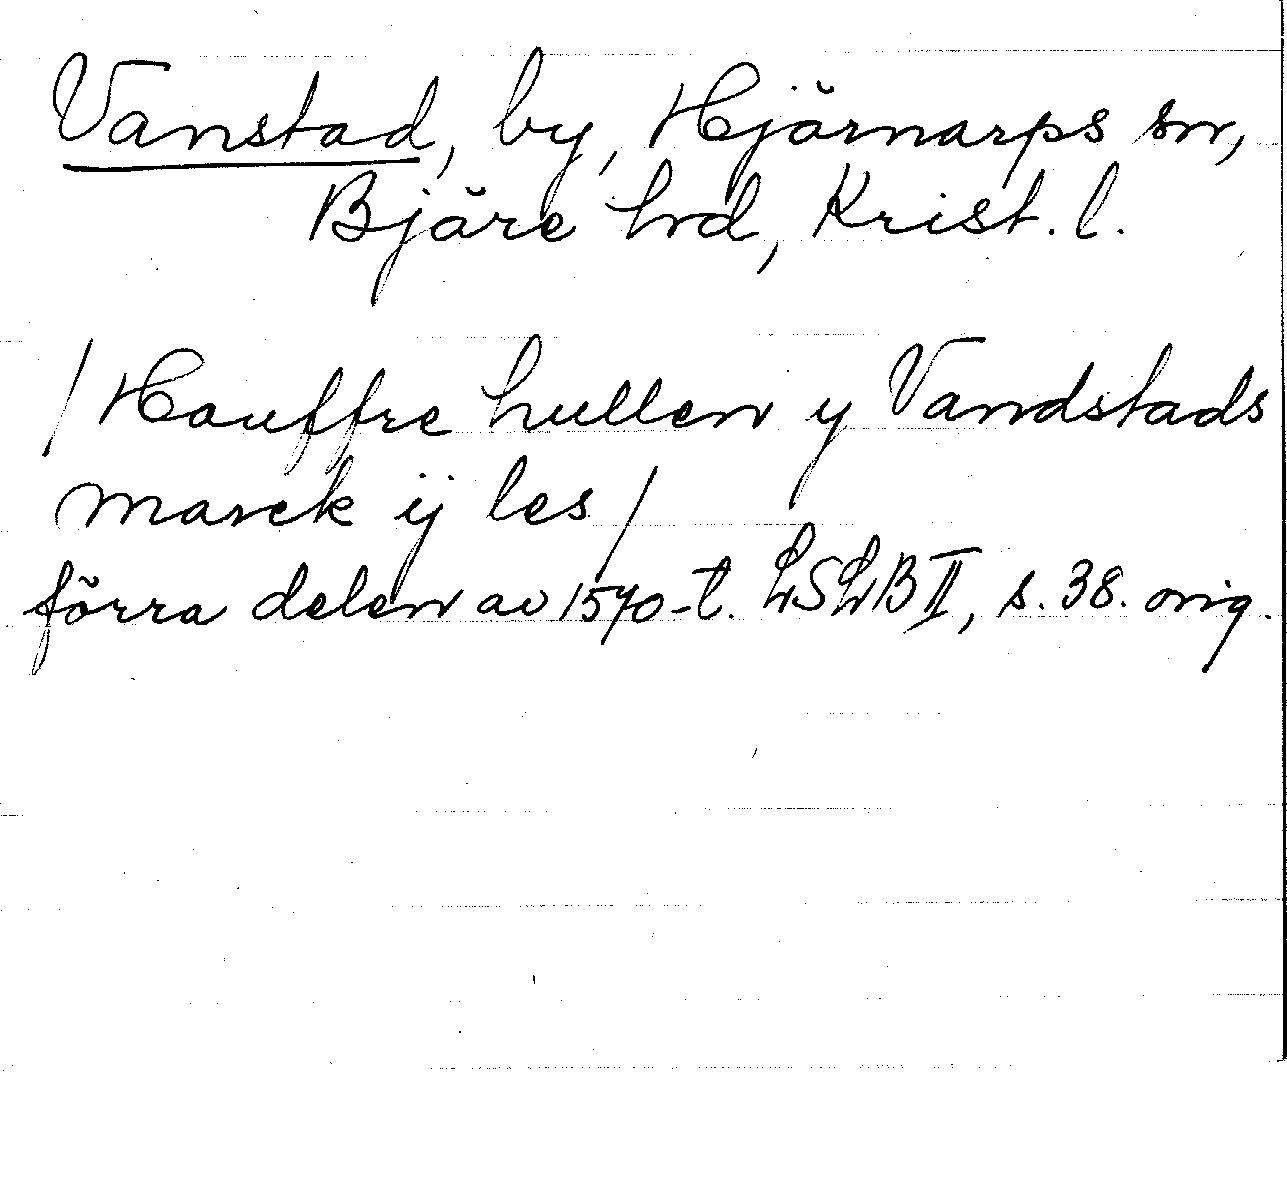 Vanstad, by, Hjärnarps sn,
Bjäre hrd, Krist. l.
/Houffre hullen y Vandstads
marck ij les/
förra delen av 1570-t. LSLB II, s. 38. orig.